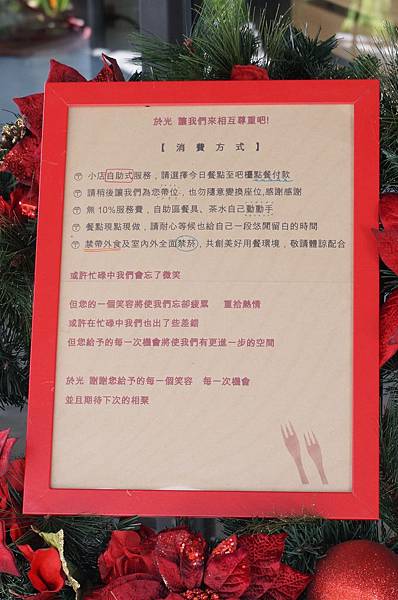 於光 讓我們來相互尊重吧!
【 消 費 方 式 】
小店自助式服務，請選擇今日餐點至吧檯點餐付款
請稍後讓我們為您帶位，也勿隨意變換座位,感謝感謝
無 10%服務費，自助區餐具、茶水自己動動手
餐點現點現做，請耐心等候也給自己一段悠閒留白的時間
禁帶外食及室內外全面禁菸，共創美好用餐環境，敬請體諒配合
或許忙碌中我們會忘了微笑
但您的一個笑容將使我們忘卻疲累 重拾熱情
或許在忙碌中我們也出了些差錯
但您給予的每一次機會將使我們有更進一步的空間
於光 謝謝您給予的每一個笑容 每一次機會
並且期待下次的相聚